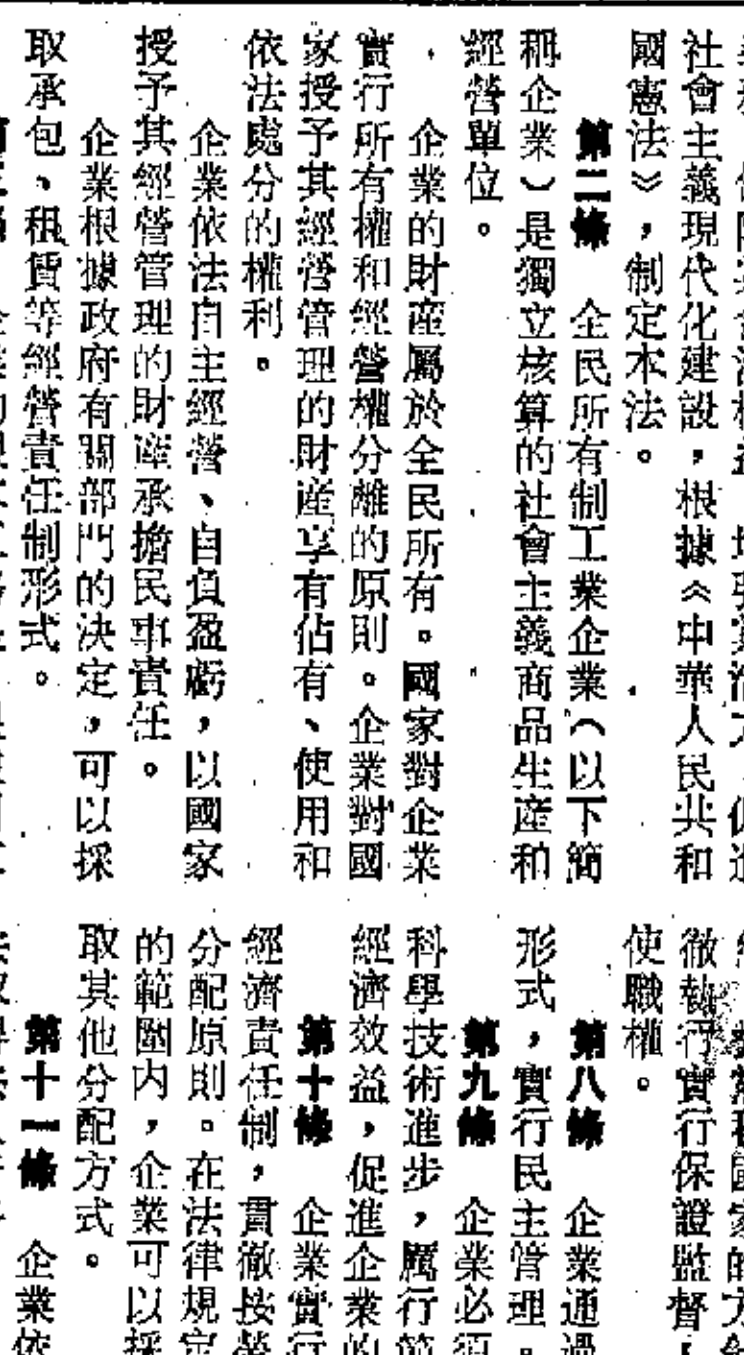 社會主義現代化建設，根據《中華人民共和
國憲法》，制定本法。
第二條　全民所有制工業企業（以下簡
稱企業）是獨立核算的社會主義商品生産和
經營單位。
企業的財産屬於全民所有。國家對企業
實行所有權和經營權分離的原則。企業對國
家授予其經營管理的財産享有佔有、使用和
依法處分的權利。
企業依法自主經營、自負盈虧，以國家
授予其經營管理的財産承擔民事責任。
企業根據政府有關部門的決定，可以採
取承包、租賃等經營責任制形式。
國家的方針
徹執行實行保證監督
使職權。
第八條　企業通過
形式，實行民主管理。
第九條　企業必須
科學技術進步，厲行節
經濟效益，促進企業的
第十條　企業實行
經濟責任制，貫徹按勞
分配原則。在法律規定
的範圍内，企業可以採
取其他分配方式。
第十一條　企業依